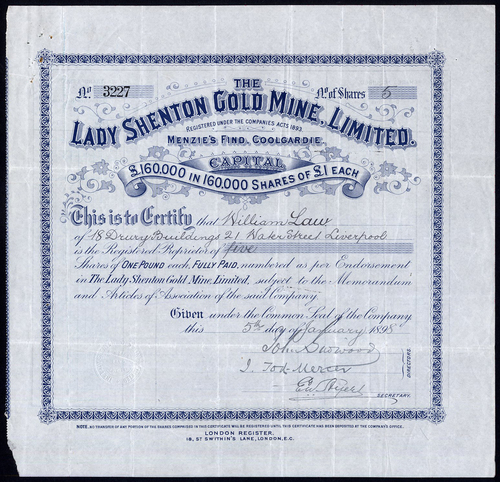 THE
No. 3227 No. of Shares 5
LADY SHENTON GOLD MINE, LIMITED.
REGISTERED UNDER THE COMPANIES ACTS 1893
MENZIE'S FIND, COOLGARDIE.
CAPITAL
£160,000 IN 160,000 SHARES OF £1 EACH
This is to Certify that William Law
of 18 Drury Buildings 21 Water Street Liverpool
is the Registered Proprietor of five
Shares of ONE POUND each, FULLY PAID, numbered as per Endorsement
in The Lady Shenton Gold Mine, Limited, subject to the Memorandum
and Articles of Association of the said Company.
Given under the Common Seal of the Company
this 5th day of January 1898
John
J. Tod-Mercer
DIRECTORS.
SECRETARY.
NOTE. NO TRANSFER OF ANY PORTION OF THE SHARES COMPRISED IN THIS CERTIFICATE WILL BE REGISTERED UNTIL THIS CERTIFICATE HAS BEEN DEPOSITED AT THE COMPANY'S OFFICE.
LONDON REGISTER.
18, ST SWITHIN'S LANE, LONDON, E.C.